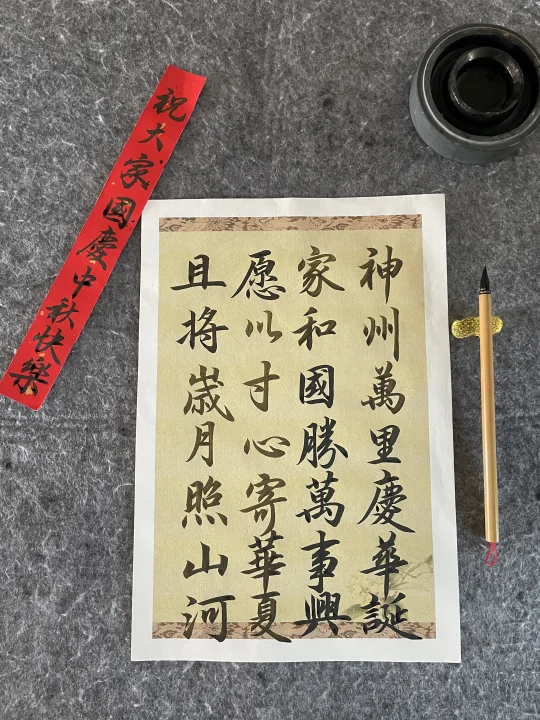 祝大家國慶中秋快樂
神州萬里慶華誕
家和國勝萬事興
愿以寸心寄華夏
且将歲月照山河